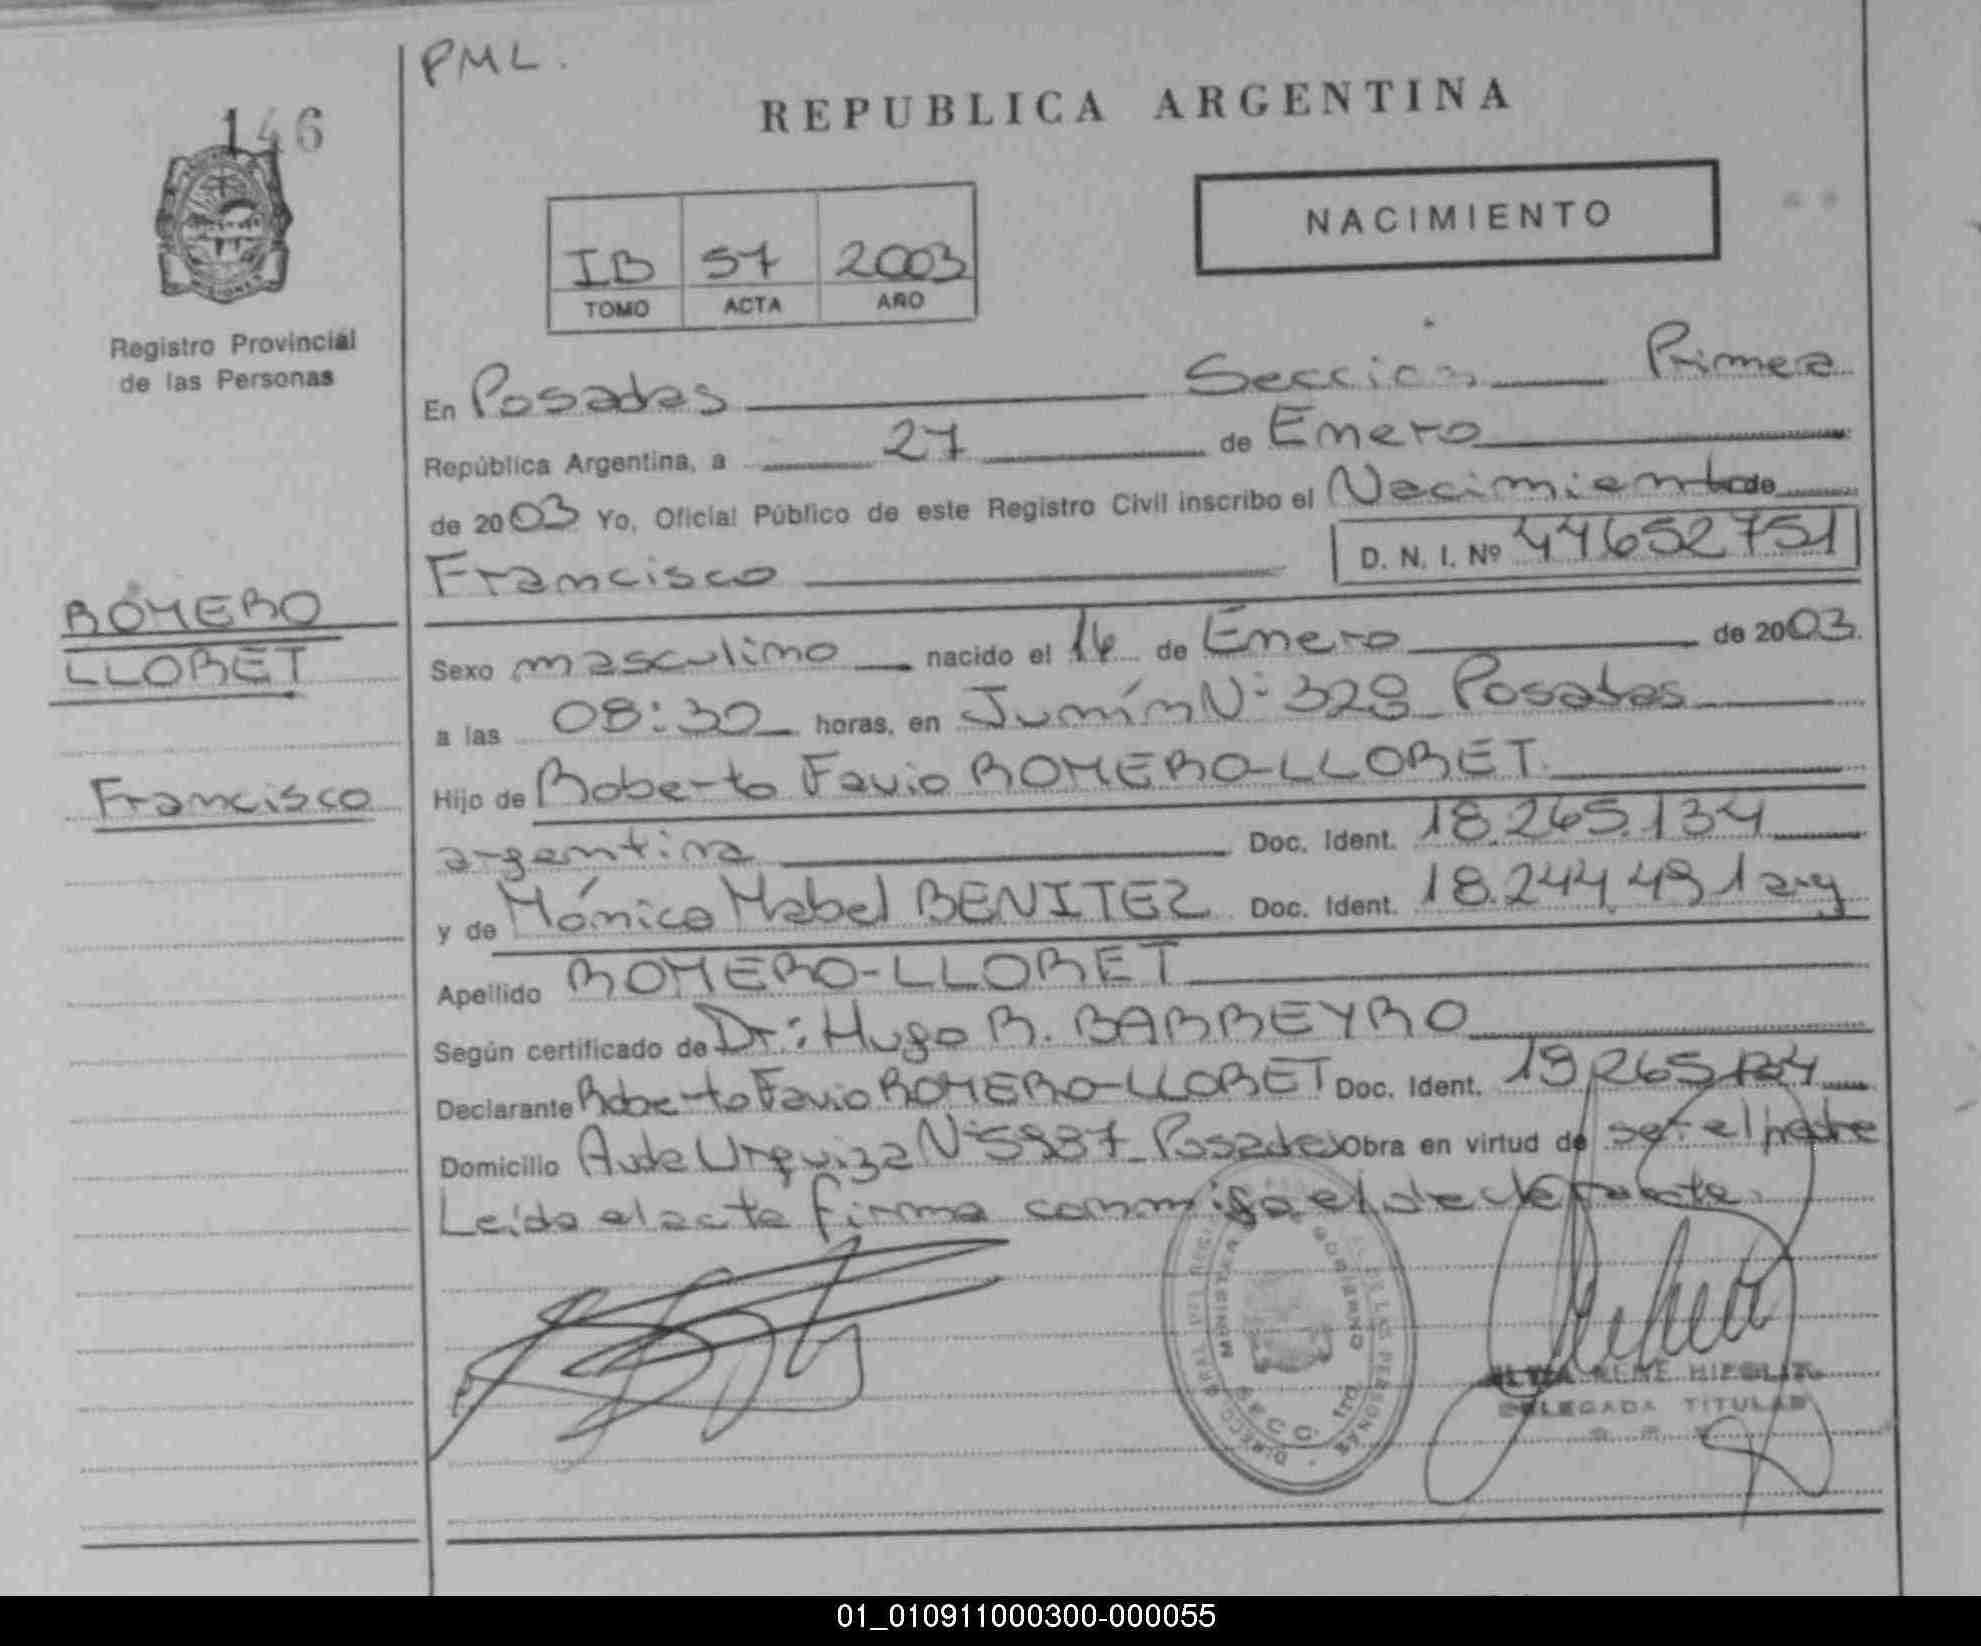 PML.
146
REPUBLICA ARGENTINA
NACIMIENTO
IB 57 2003
TOMO ACTA AÑO
Registro Provincial
de las Personas
En Posadas Sección Primera
República Argentina, a 27 de Enero
de 2003 Yo, Oficial Público de este Registro Civil inscribo el Nacimiento de
Francisco D. N. I. Nº 44652751
ROMERO
LLORET
Francisco
Sexo masculino nacido el de Enero de 2003.
a las 08:30 horas, en Junín Nº 329 Posadas
Hijo de Roberto Favio ROMERO-LLORET
argentina Doc. Ident. 18.265.134
y de Mónica Mabel BENITEZ Doc. Ident. 18.244.491 arg
Apellido ROMERO-LLORET
Según certificado de Dr: Hugo R. BARREYRO
Declarante Roberto Favio ROMERO-LLORET Doc. Ident.
Domicilio Avda Urquiza Nº 5987 Posadas Obra en virtud de ser el padre
Leída el acta firma conmigo el declarante.
DELEGADA TITULAR
01_010911000300-000055